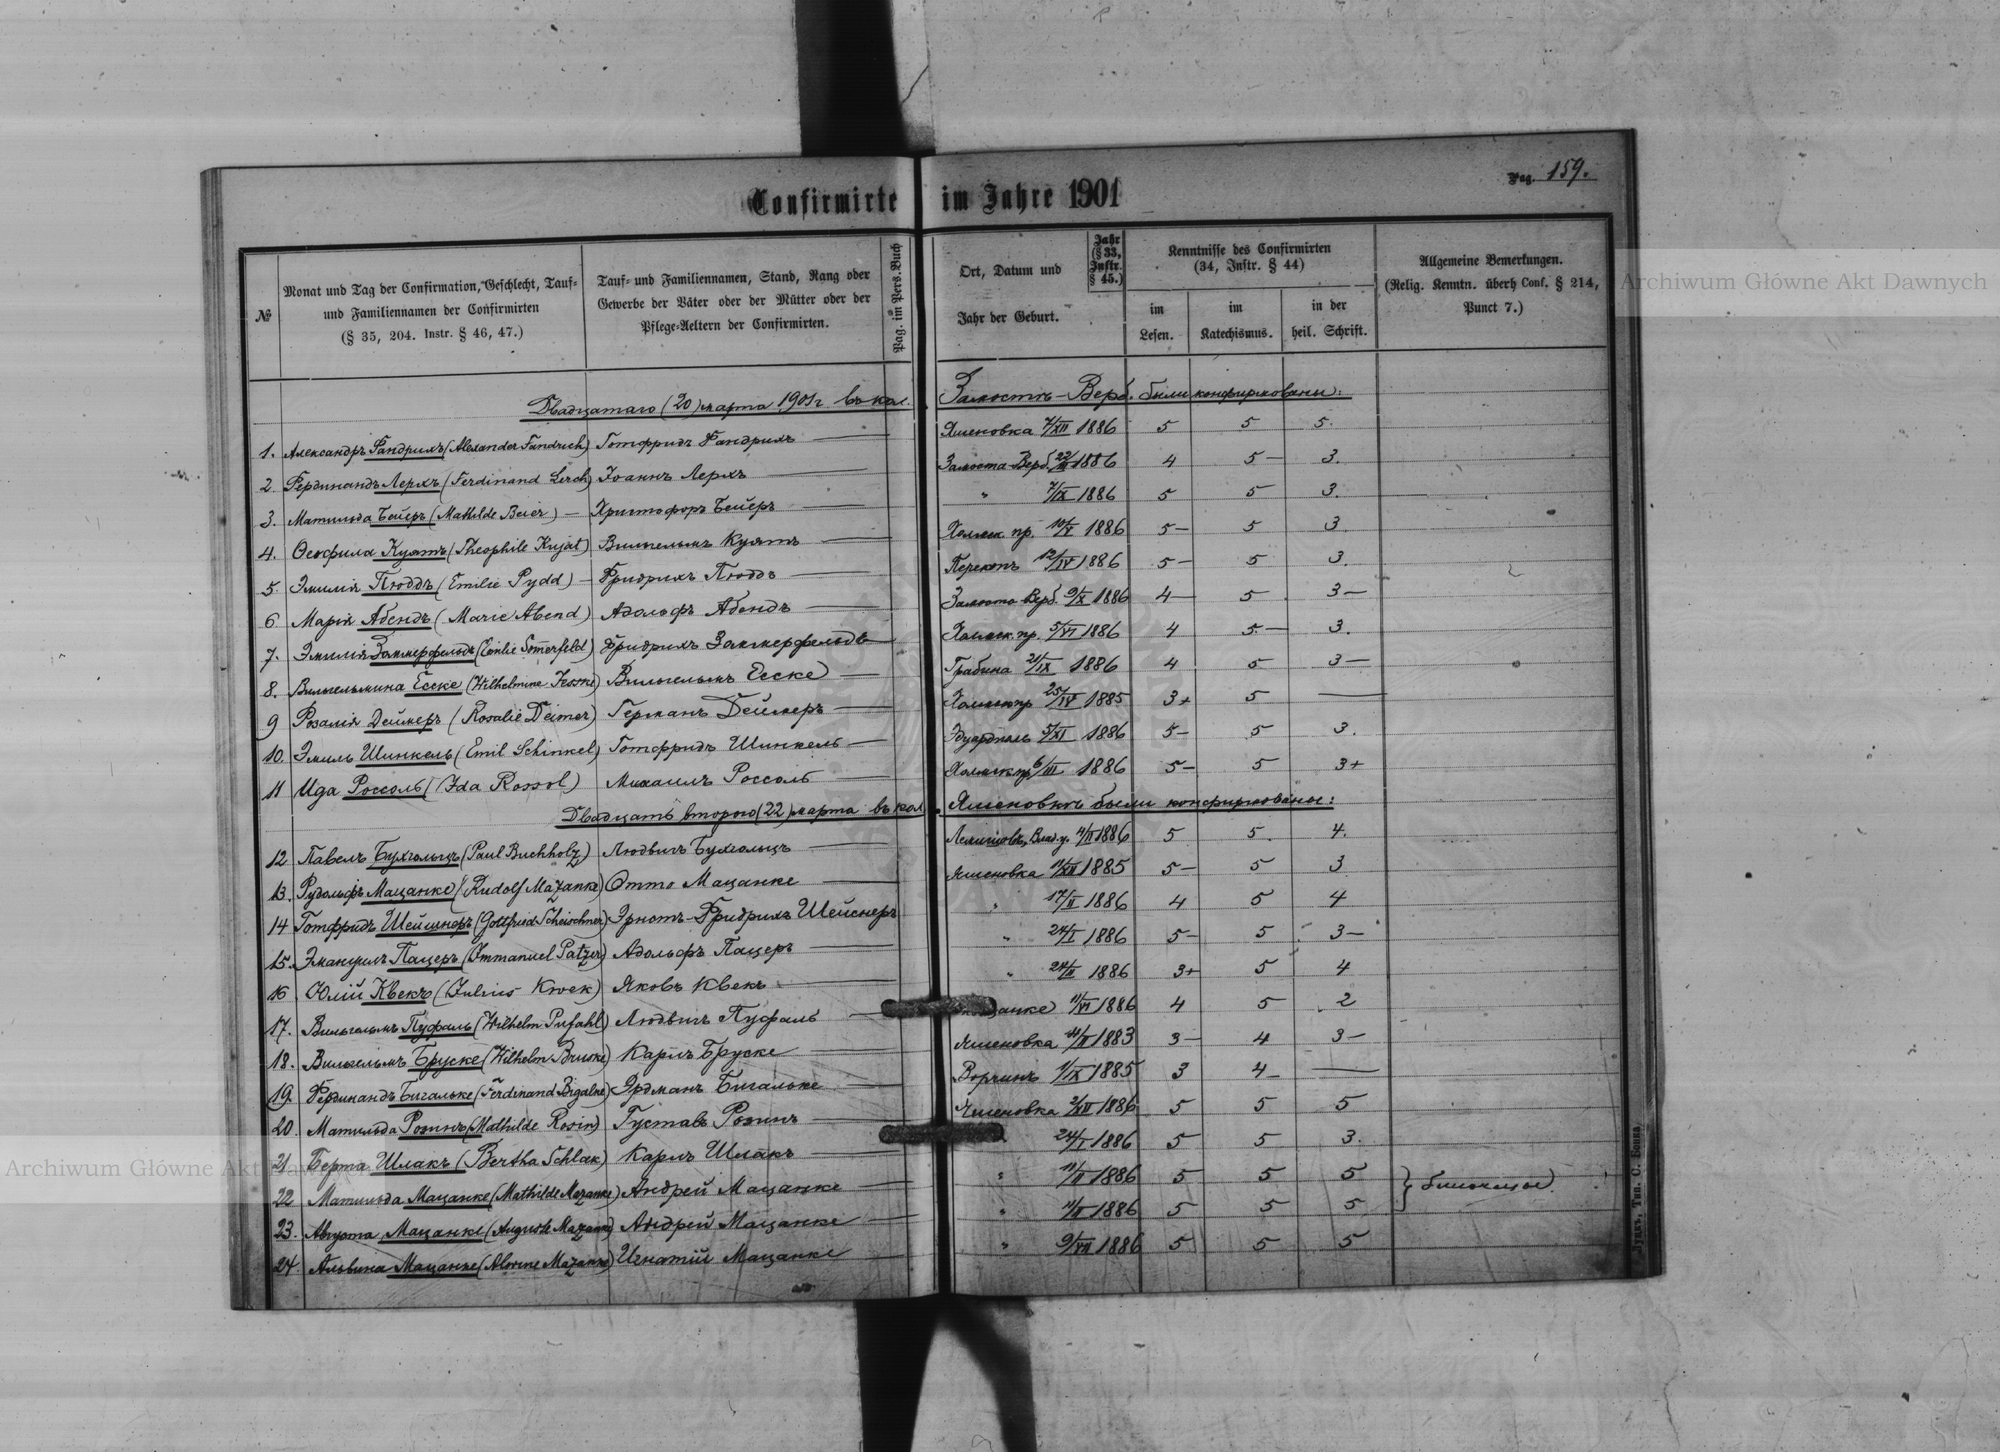 Confirmirte im Jahre 1901
Pag. 159.
№
Monat und Tag der Confirmation, Geschlecht, Tauf-
und Familiennamen der Confirmirten
(§ 35, 204. Instr. § 46, 47.)
Tauf- und Familiennamen, Stand, Rang oder
Gewerbe der Väter oder der Mütter oder der
Pflege-Aeltern der Confirmirten.
Pag. im Pers. Buch
Ort, Datum und
Jahr der Geburt.
Jahr
(§ 33,
Instr.
§ 45.)
Kenntnisse des Confirmirten
(34, Instr. § 44)
im
Lesen.
im
Katechismus.
in der
heil. Schrift.
Allgemeine Bemerkungen.
(Relig. Kenntn. überh Conf. § 214,
Punct 7.)
Двадцатаго (20) марта 1901 г. въ кол. Замостъ-Верб. были конфирмованы:
1. Александръ Фандрихъ (Alexander Fandrich) Готфридъ Фандрихъ — Яшеновка 7/XII 1886 5 5 5.
2. Фердинандъ Лерхъ (Ferdinand Lerch) Іоаннъ Лерхъ — Замоста-Верб. 1886 4 5— 3.
3. Матильда Бейеръ (Mathilde Beier) — Христофоръ Бейеръ — " 7/IX 1886 5 5 3.
4. Ѳеофила Куятъ (Theophile Kujat) Вильгельмъ Куятъ — Холмск. пр. 10/V 1886 5— 5 3.
5. Эмилія Пюддъ (Emilie Pydd) — Фридрихъ Пюддъ — Перекопъ 12/IV 1886 5— 5 3.
6 Марія Абендъ (Marie Abend) Адольфъ Абендъ — Замосто Верб. 9/X 1886 4— 5 3—
7. Эмилія Заммерфельдъ (Emilie Somerfeld) Фридрихъ Заммерфельдъ Холмск. пр. 5/VI 1886 4 5.— 3.
8. Вильгельмина Есске (Wilhelmine Jesske) Вильгельмъ Есске — Грабина 21/IX 1886 4 5 3—
9 Розалія Деймеръ (Rosalie Deimer) Германъ Деймеръ — 25/IV 1885 3+ 5 —
10. Эмиль Шинкель (Emil Schinkel) Готфридъ Шинкель — Эдуардполь 5/XI 1886 5— 5 3.
11 Ида Россоль (Ida Rossol) Михаилъ Россоль — Холмск пр. 6/III 1886 5— 5 3+
Двадцать второго (22) марта въ кол. Яшеновкѣ были конфирмованы:
12 Павелъ Бухгольцъ (Paul Buchholz) Людвигъ Бухгольцъ — 4/II 1886 5 5. 4.
13. Рудольфъ Мацанке (Rudolf Mazanke) Отто Мацанке — Яшеновка 11/XII 1885 5— 5 3
14 Готфридъ Шейшнеръ (Gottfried Scheischner) Эрнстъ-Фридрихъ Шейснеръ " 17/II 1886 4 5 4
15. Эмануилъ Пацеръ (Emmanuel Patzer) Адольфъ Пацеръ — " 24/I 1886 5— 5 3—
16 Юлій Квекъ (Julius Kwek) Яковъ Квекъ — " 24/II 1886 3+ 5 4
17. Вильгельмъ Пуфаль (Wilhelm Pufahl) Людвигъ Пуфаль — 11/VI 1886 4 5 2
18. Вильгельмъ Бруске (Wilhelm Bruske) Карлъ Бруске — Яшеновка 1883 3— 4 3—
19. Фердинандъ Бигальке (Ferdinand Bigalke) Эрдманъ Бигальке — Ворчинъ 1/IX 1885 3 4— —
20. Матильда Розинъ (Mathilde Rosin) Густавъ Розинъ — Яшеновка 2/XII 1886 5 5 5
21 Берта Шлакъ (Bertha Schlak) Карлъ Шлакъ — 24/I 1886 5 5 3.
22 Матильда Мацанке (Mathilde Mazanke) Андрей Мацанке — " 11/II 1886 5 5 5 } близнецы.
23. Августа Мацанке (Auguste Mazanke) Андрей Мацанке — " 11/II 1886 5 5 5
24. Альвина Мацанке (Alwine Mazanke) Игнатій Мацанке — " 9/VII 1886 5 5 5
Archiwum Główne Akt Dawnych
Archiwum Główne Akt Dawnych